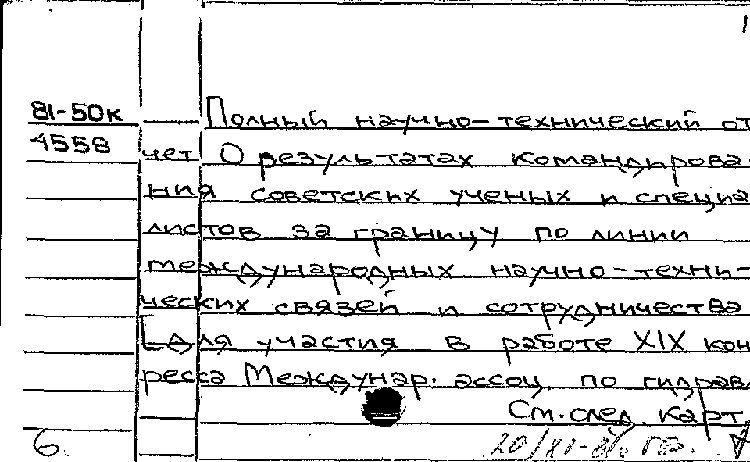 1
81-50к
4558
Полный научно-технический от
чет О результатах командирова
ния советских ученых и специа
листов за границу по линии
международных научно-техни-
ческих связей и сотрудничества
[для участия в работе XIX кон
ресса Междунар. ассоц. по гидрав
См. след карт
6
20/XI-81